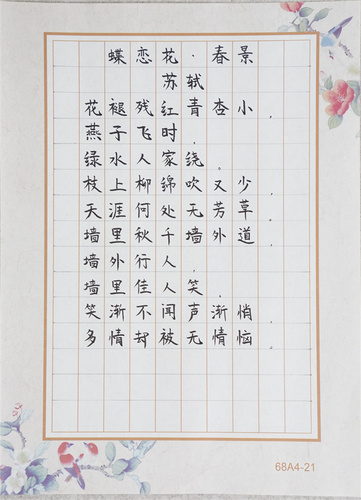 蝶恋花·春景
苏轼
花褪残红青杏小。
燕子飞时，
绿水人家绕。
枝上柳绵吹又少，
天涯何处无芳草。
墙里秋千墙外道。
墙外行人，
墙里佳人笑。
笑渐不闻声渐悄，
多情却被无情恼。
68A4-21